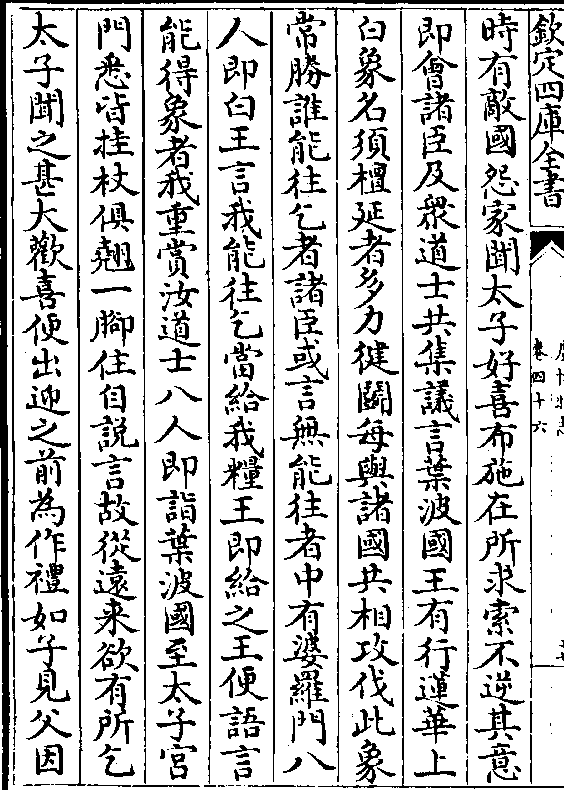 欽定四庫全書
卷四十六
時有敵國怨家聞太子好喜布施在所求索不逆其意
即會諸臣及衆道士共集議言葉波國王有行蓮華上
白象名須檀延者多力健鬭每與諸國共相攻伐此象
常勝誰能往乞者諸臣或言無能往者中有婆羅門八
人即白王言我能往乞當給我糧王即給之王便語言
能得象者我重賞汝道士八人即詣葉波國至太子宮
門悉皆拄杖俱翹一腳住自説言故從遠来欲有所乞
太子聞之甚大歡喜便出迎之前為作禮如子見父因